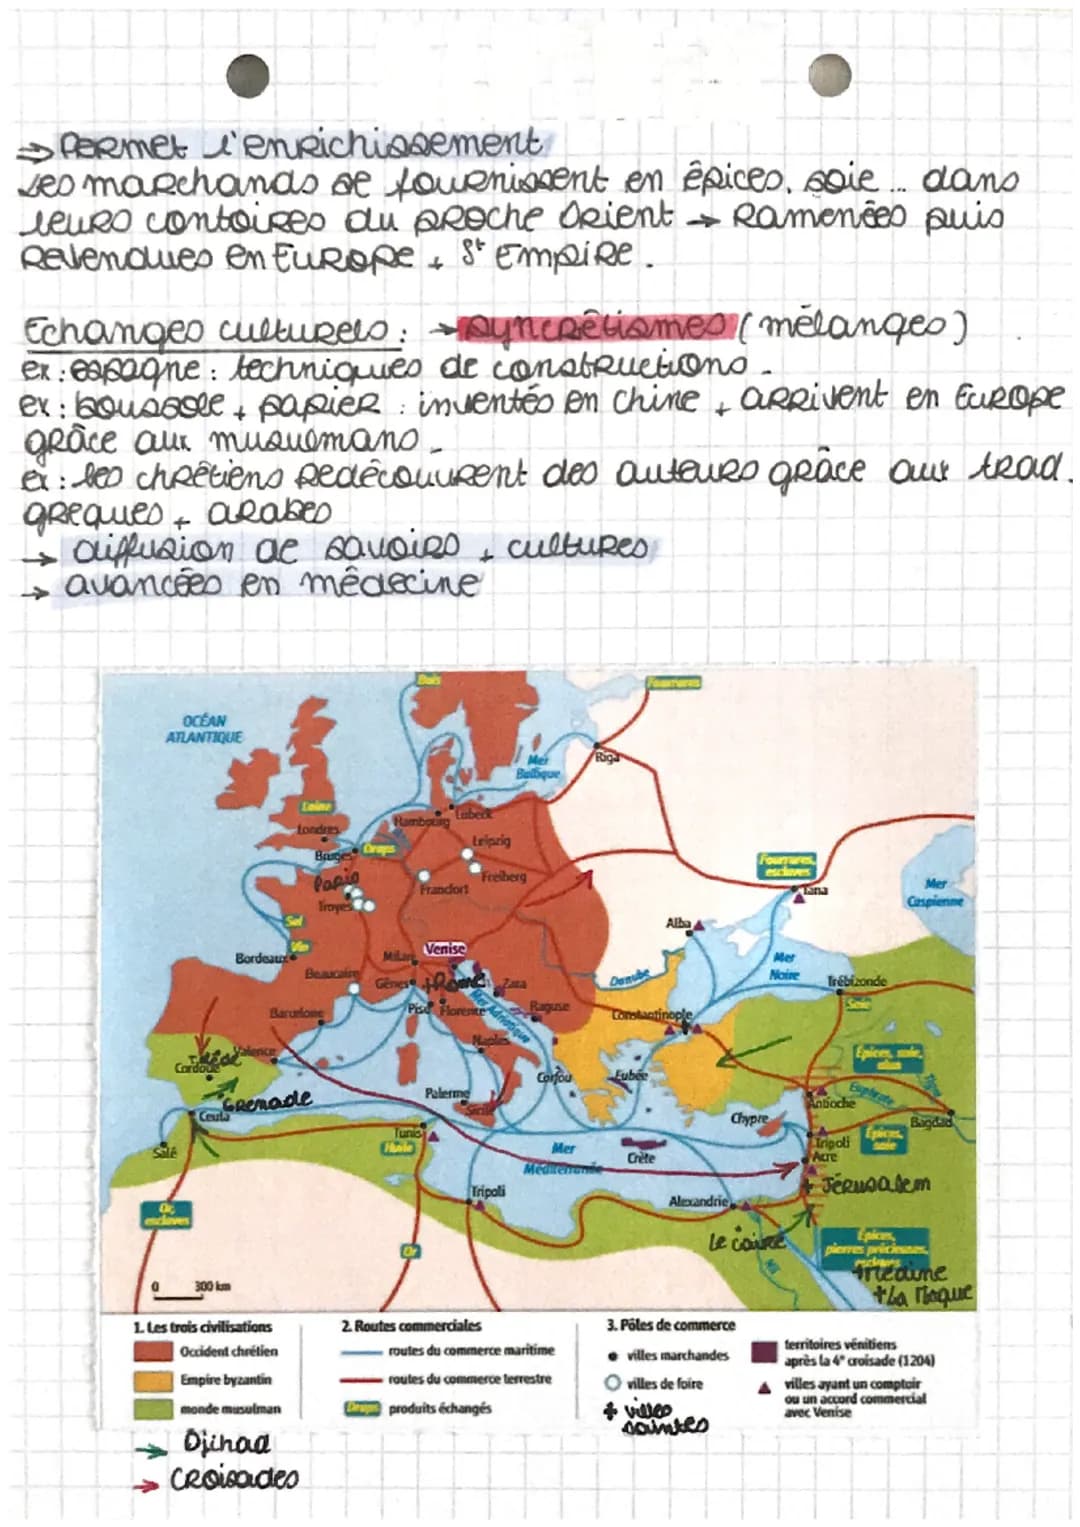 ⇒ Permet l'enrichissement
Les marchands se fournissent en épices, soie ... dans
leurs contoires du proche Orient → Ramenées puis
Revendues en Europe + St Empire.
Echanges culturels : → syncrétismes (mélanges)
ex : espagne : techniques de constructions.
ex : boussole + papier : inventés en Chine + arrivent en Europe
grâce aux musulmans.
ex : les chrétiens Redécouvrent des auteurs grâce aux trad.
greques + arabes
→ diffusion de savoirs + cultures
→ avancées en médecine
Bois
Fourrures
OCÉAN
ATLANTIQUE
Mer
Baltique
Riga
Laine
Londres
Hambourg
Lübeck
Bruges
Draps
Leipzig
Paris
Francfort
Freiberg
Troyes
Fourrures,
esclaves
Tana
Mer
Caspienne
Sel
Vin
Bordeaux
Alba
Milan
Venise
Mer
Noire
Beaucaire
Gênes
+Rome
Zara
Danube
Trébizonde
Soie
Barcelone
Pise
Florence
Mer Adriatique
Raguse
Constantinople
Naples
Valence
Tolède
Cordoue
Épices, soie,
Corfou
Eubée
Euphrate
Tigre
Grenade
Palerme
Sicile
Antioche
Ceuta
Chypre
Bagdad
Tunis
Huile
Salé
Mer
Méditerranée
Crète
Tripoli
Acre
Épices,
soie
+ Jérusalem
Tripoli
Alexandrie
Or,
esclaves
Le Caire
Nil
Or
Épices,
pierres précieuses,
+Médine
+La Meque
0 300 km
1. Les trois civilisations
Occident chrétien
Empire byzantin
monde musulman
2. Routes commerciales
routes du commerce maritime
routes du commerce terrestre
Draps produits échangés
3. Pôles de commerce
villes marchandes
villes de foire
+ villes
saintes
territoires vénitiens
après la 4e croisade (1204)
villes ayant un comptoir
ou un accord commercial
avec Venise
→ Djihad
→ Croisades